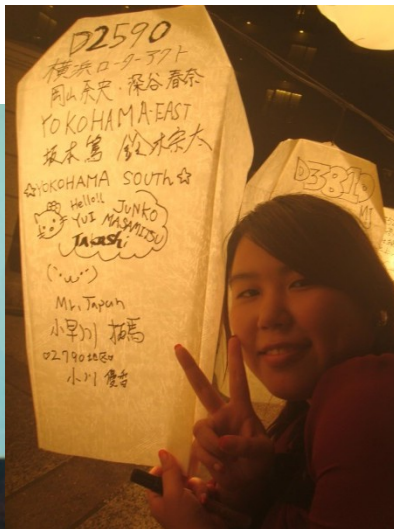 D2590
横浜ローターアクト
岡山泰史・深谷春奈
YOKOHAMA-EAST
坂本篤 鈴木宗太
☆YOKOHAMA SOUTH☆
Hello!! JUNKO
YUI MASAMITSU
Takashi
(`・ω・´)
Mr. Japan
小早川 拓馬
D2790地区
小川 優哲
D3810